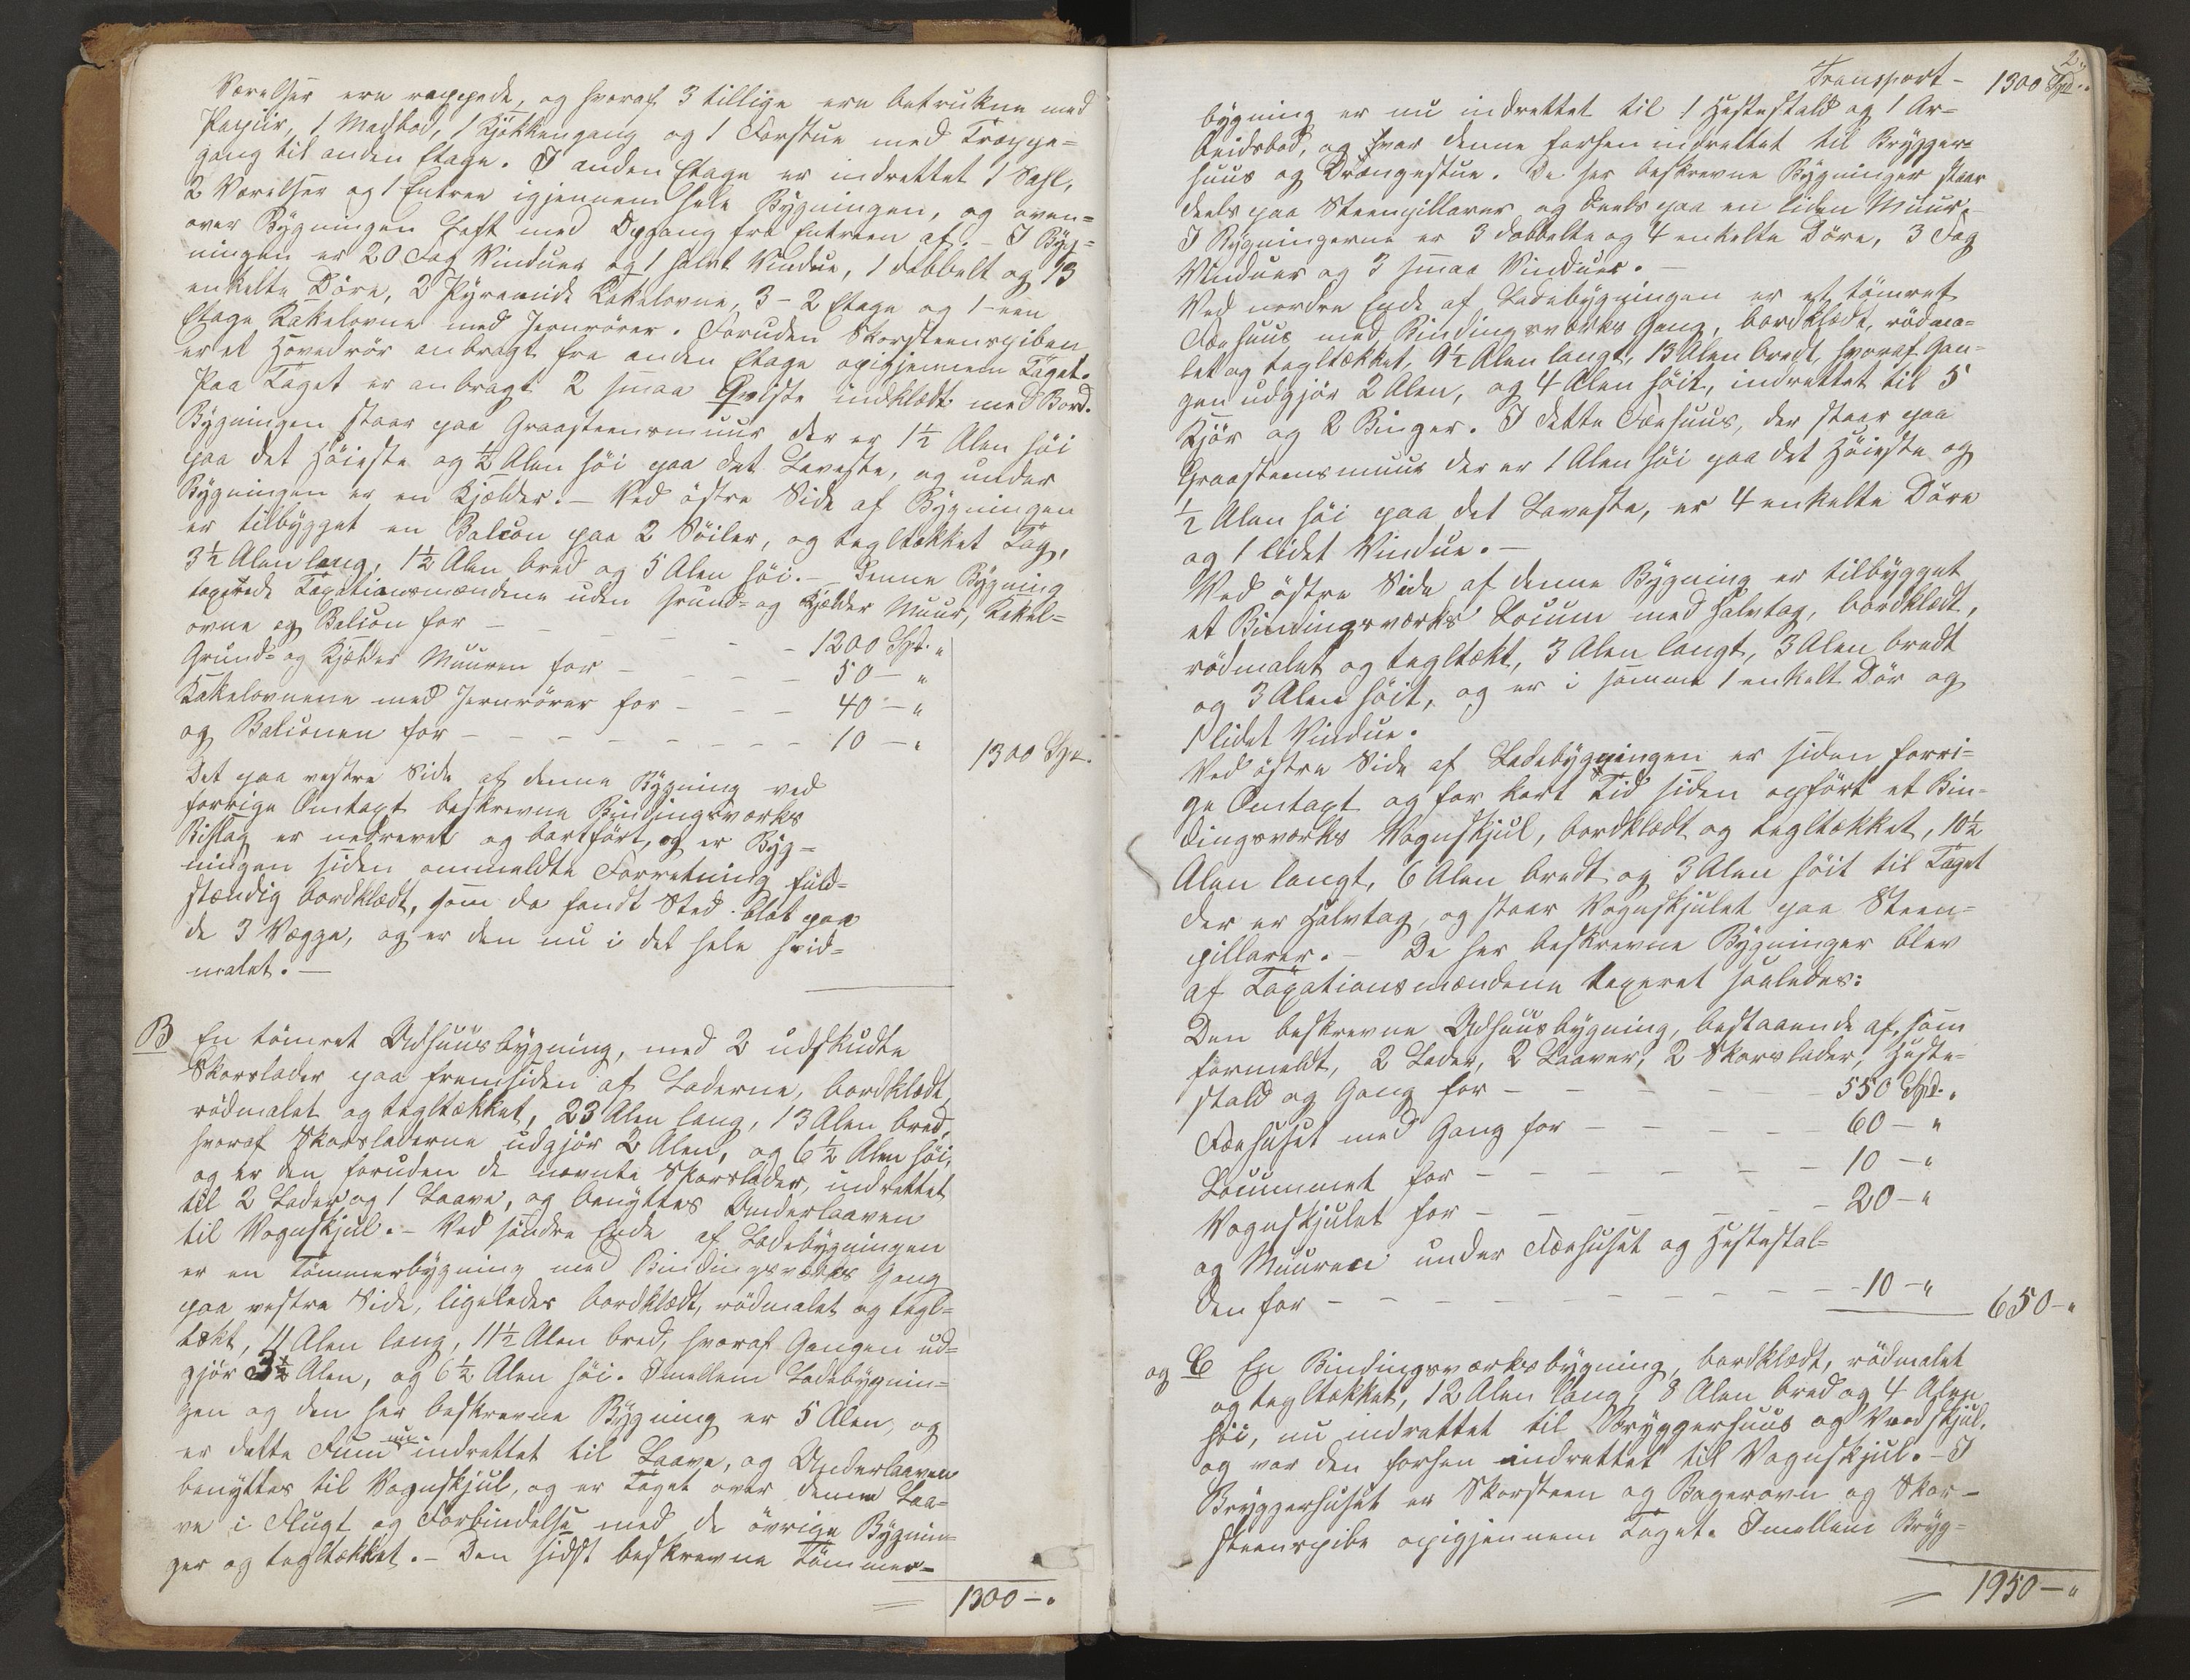 Værelser ere rappede, og hvoraf 3 tillige ere betrukne med
Papiir, 1 Madbod, 1 Kjökkengang og 1 Forstue med Trappe=
gang til anden Etage. I anden Etage er indrettet 1 Sahl,
2 Værelser og 1 Entree igjennem hele Bygningen, og oven=
over Bygningen Loft med Opgang fra Entreen af. – I Byg=
ningen er 20 Fag Vinduer og 1 halvt Vindue, 1 dobbelt og 13
enkelte Döre, 2 Pyramide Kakelovne, 3 – 2 Etage og 1 – een
Etage Kakelovne med Jernrörer. Foruden Skorsteenspiben
er et Hovedrör anbragt fra anden Etage opigjennem Taget.
Paa Taget er anbragt 2 smaa Qviste indklædt med Bord.
Bygningen staar paa Graasteensmuur der er 1½ Alen höi
paa det Höieste og ½ Alen höi paa det Laveste, og under
Bygningen er en Kjælder. – Ved östre Side af Bygningen
er tilbygget en Balcon paa 2 Söiler, og tegltækket Tag,
3½ Alen lang, 1½ Alen bred og 5 Alen höi. – Denne Bygning
taxerede Taxationsmændene uden Grund= og Kjælder Muur, Kakel=
ovne og Balcon for – – – – – 1200 Spd. "
Grund= og Kjælder Muuren for – – – – 50 – "
Kakelovnene med Jernrörer for – – – 40 – "
og Balconen for – – – – – – – – 10 – " 1300 Spd.
Det paa vestre Side af denne Bygning ved
forrige Omtaxt beskrevne Bindingsværks
Bislag er nedrevet og bortfört, og er Byg=
ningen siden ommeldte Forretning fuld=
stændig bordklædt, som da fandt Sted blot paa
de 3 Vægge, og er den nu i det hele hvid=
malet. –
B En tömret Udhuusbygning, med 2 udskudte
Skorslader paa fremsiden af Laderne, bordklædt,
rödmalet og tegltækket, 23 Alen lang, 13 Alen bred,
hvoraf Skorsladerne udgjör 2 Alen, og 6½ Alen höi,
og er den foruden de nævnte Skorslader, indrettet
til 2 Lader og 1 Laave, og benyttes Underlaaven
til Vognskjul. – Ved söndre Ende af Ladebygningen
er en Tömmerbygning med Bindingsværks Gang
paa vestre Side, ligeledes bordklædt, rödmalet og tegl=
tækt, 11 Alen lang, 11½ Alen bred, hvoraf Gangen ud=
gjör 3½ Alen, og 6½ Alen höi. Imellem Ladebygnin=
gen og den her beskrevne Bygning er 5 Alen, og
er dette Rum nu indrettet til Laave, og Underlaaven
benyttes til Vognskjul, og er Taget over denne Laa=
ve i Flugt og Forbindelse med de övrige Bygnin=
ger og tegltækket. – Den sidst beskrevne Tömmer=
1300 – "
2
Transport – 1300 Spd. "
bygning er nu indrettet til 1 Hestestald og 1 Ar=
beidsbod, og var denne forhen indrettet til Brygger=
huus og Drængestue. De her beskrevne Bygninger staar
deels paa Steenpillarer og deels paa en liden Muur. –
I Bygningerne er 3 dobbelte og 4 enkelte Döre, 3 Fag
Vinduer og 3 smaa Vinduer. –
Ved nordre Ende af Ladebygningen er et tömret
Fæehuus med Bindingsværks Gang, bordklædt, rödma=
let og tegltækket, 9½ Alen langt, 13 Alen bredt, hvoraf Gan=
gen udgjör 2 Alen, og 4 Alen höit, indrettet til 5
Kjör og 2 Binger. I dette Fæehuus, der staar paa
Graasteensmuur der er 1 Alen höi paa det Höieste og
½ Alen höi paa det Laveste, er 4 enkelte Döre
og 1 lidet Vindue. –
Ved östre Side af denne Bygning er tilbygget
et Bindingsværks Locum med Halvtag, bordklædt,
rödmalet og tegltækt, 3 Alen langt, 3 Alen bredt
og 3 Alen höit, og er i samme 1 enkelt Dör og
1 lidet Vindue.
Ved östre Side af Ladebygningen er siden forri=
ge Omtaxt og for kort Tid siden opfört et Bin=
dingsværks Vognskjul, bordklædt og tegltækket, 10½
Alen langt, 6 Alen bredt og 3 Alen höit til Taget
der er Halvtag, og staar Vognskjulet paa Steen=
pillarer. – De her beskrevne Bygninger blev
af Taxationsmændene taxeret saaledes:
Den beskrevne Udhuusbygning, bestaaende af, som
formeldt, 2 Lader, 2 Laaver, 2 Skorslader, Heste=
stald og Gang for – – – – – 550 Spd. "
Fæehuset med Gang for – – – – – 60 – "
Locummet for – – – – – – 10 – "
Vognskjulet for – – – – – – 20 – "
og Muuren under Fæehuset og Hestestal=
den for – – – – – – – – – 10 – " 650 – "
og C En Bindingsværksbygning, bordklædt, rödmalet
og tegltækket, 12 Alen lang, 8 Alen bred og 4 Alen
höi, nu indrettet til Bryggerhuus og Vedskjul,
og var den forhen indrettet til Vognskjul. – I
Bryggerhuset er Skorsteen og Bagerovn og Skor=
steenspibe opigjennem Taget. Imellem Bryg=
1950 – "